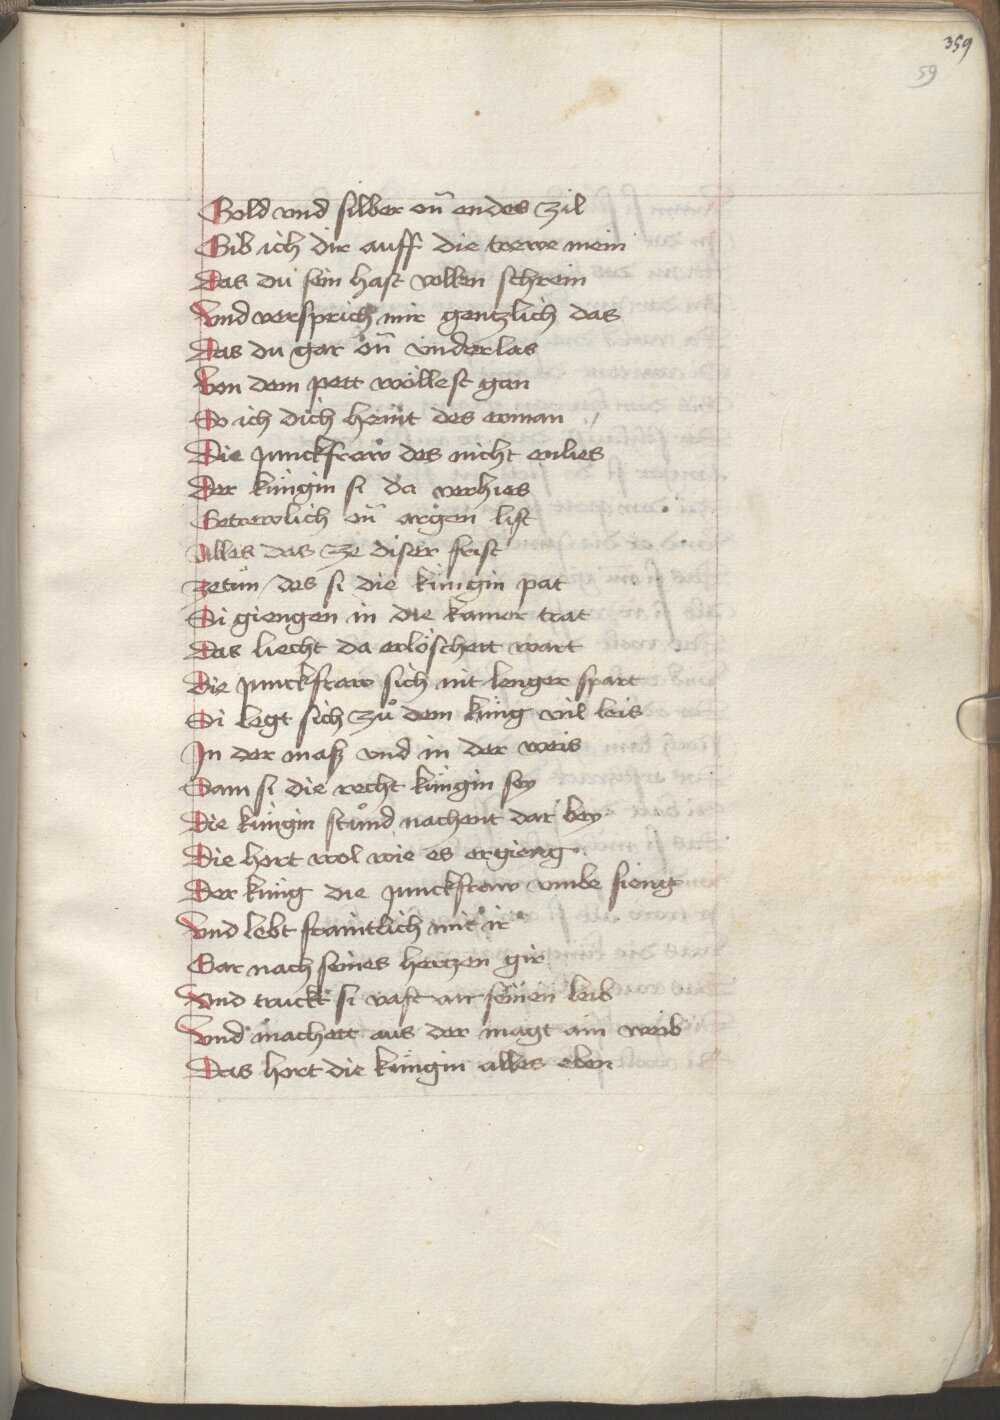 359
59
Gold vnd silber on̄ endes zil
Gib ich dir auff die trewe mein
Das du sein hast vollen schrein
Vnd versprich mir gentzlich das
Das du gar on̄ vnderlas
Von dem pett wöllest gan
So ich dich heint des erman
Die junckfraw des nicht enlies
Der küngin si da verhies
Getrewlich on̄ argen list
Alles das ze diser frist
Zetün / des si die künigin pat
Si giengen in die kamer trat
Das liecht da erlöschett wart
Die junckfraw sich nit lenger spart
Si legt sich zů dem küng vil leis
In der mass vnd in der weis
Sam si die recht küngin sey
Die küngin stůnd nachent dar bey
Die hort wol wie es ergieng
Der küng die junckfraw vmbe fieng
Vnd lebt fraintlich mit ir
Gar nach seines hertzen gir
Vnd truckt si vast an seinen leib
Vnd machett aus der magt ain weib
Das hort die küngin alles eben